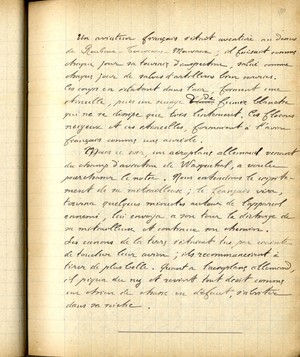 Un aviateur français s'étant aventuré au dessus
de ; il faisant comme
chaque jour sa tournée d'inspection, salué comme
chaque jour de salves d'artilleries bien nourries.
les corps en éclatant dans l'air, forment une
étincelle, puis un nuage de fumée blanche
qui ne se dissipe que très lentement. Ces flocons
neigeux et ces étincelles, formaient à l'avion
français comme une auréole.
Mais ce soir un aéroplane allemand venant
du champ d'aviation de , a voulu
pourchasser le notre. Nous entendîmes le
ment de sa mitrailleuse ; le français vira
tourna quelques minutes autour de l'appareil
ennemi, lui envoya à son tour la décharge de
sa mitrailleuse et continua son chemin.
Les canons de la terre s'étaient tus, par crainte
de toucher leur avion ; ils recommencèrent à
tirer de plus belle. Quant à l'aéroplane allemand,
il piqua du nez et revint tout droit comme
un chien de chasse en défaut, s'abriter
dans sa niche.